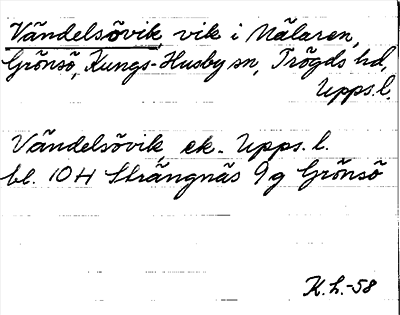 Vändelsövik, vik i Mälaren,
Grönsö, Kungs-Husby sn, Trögds hd,
Upps.l.
Vändelsövik, ek. Upps. l.
bl. 10H Strängnäs 9g Grönsö
K.L.-58